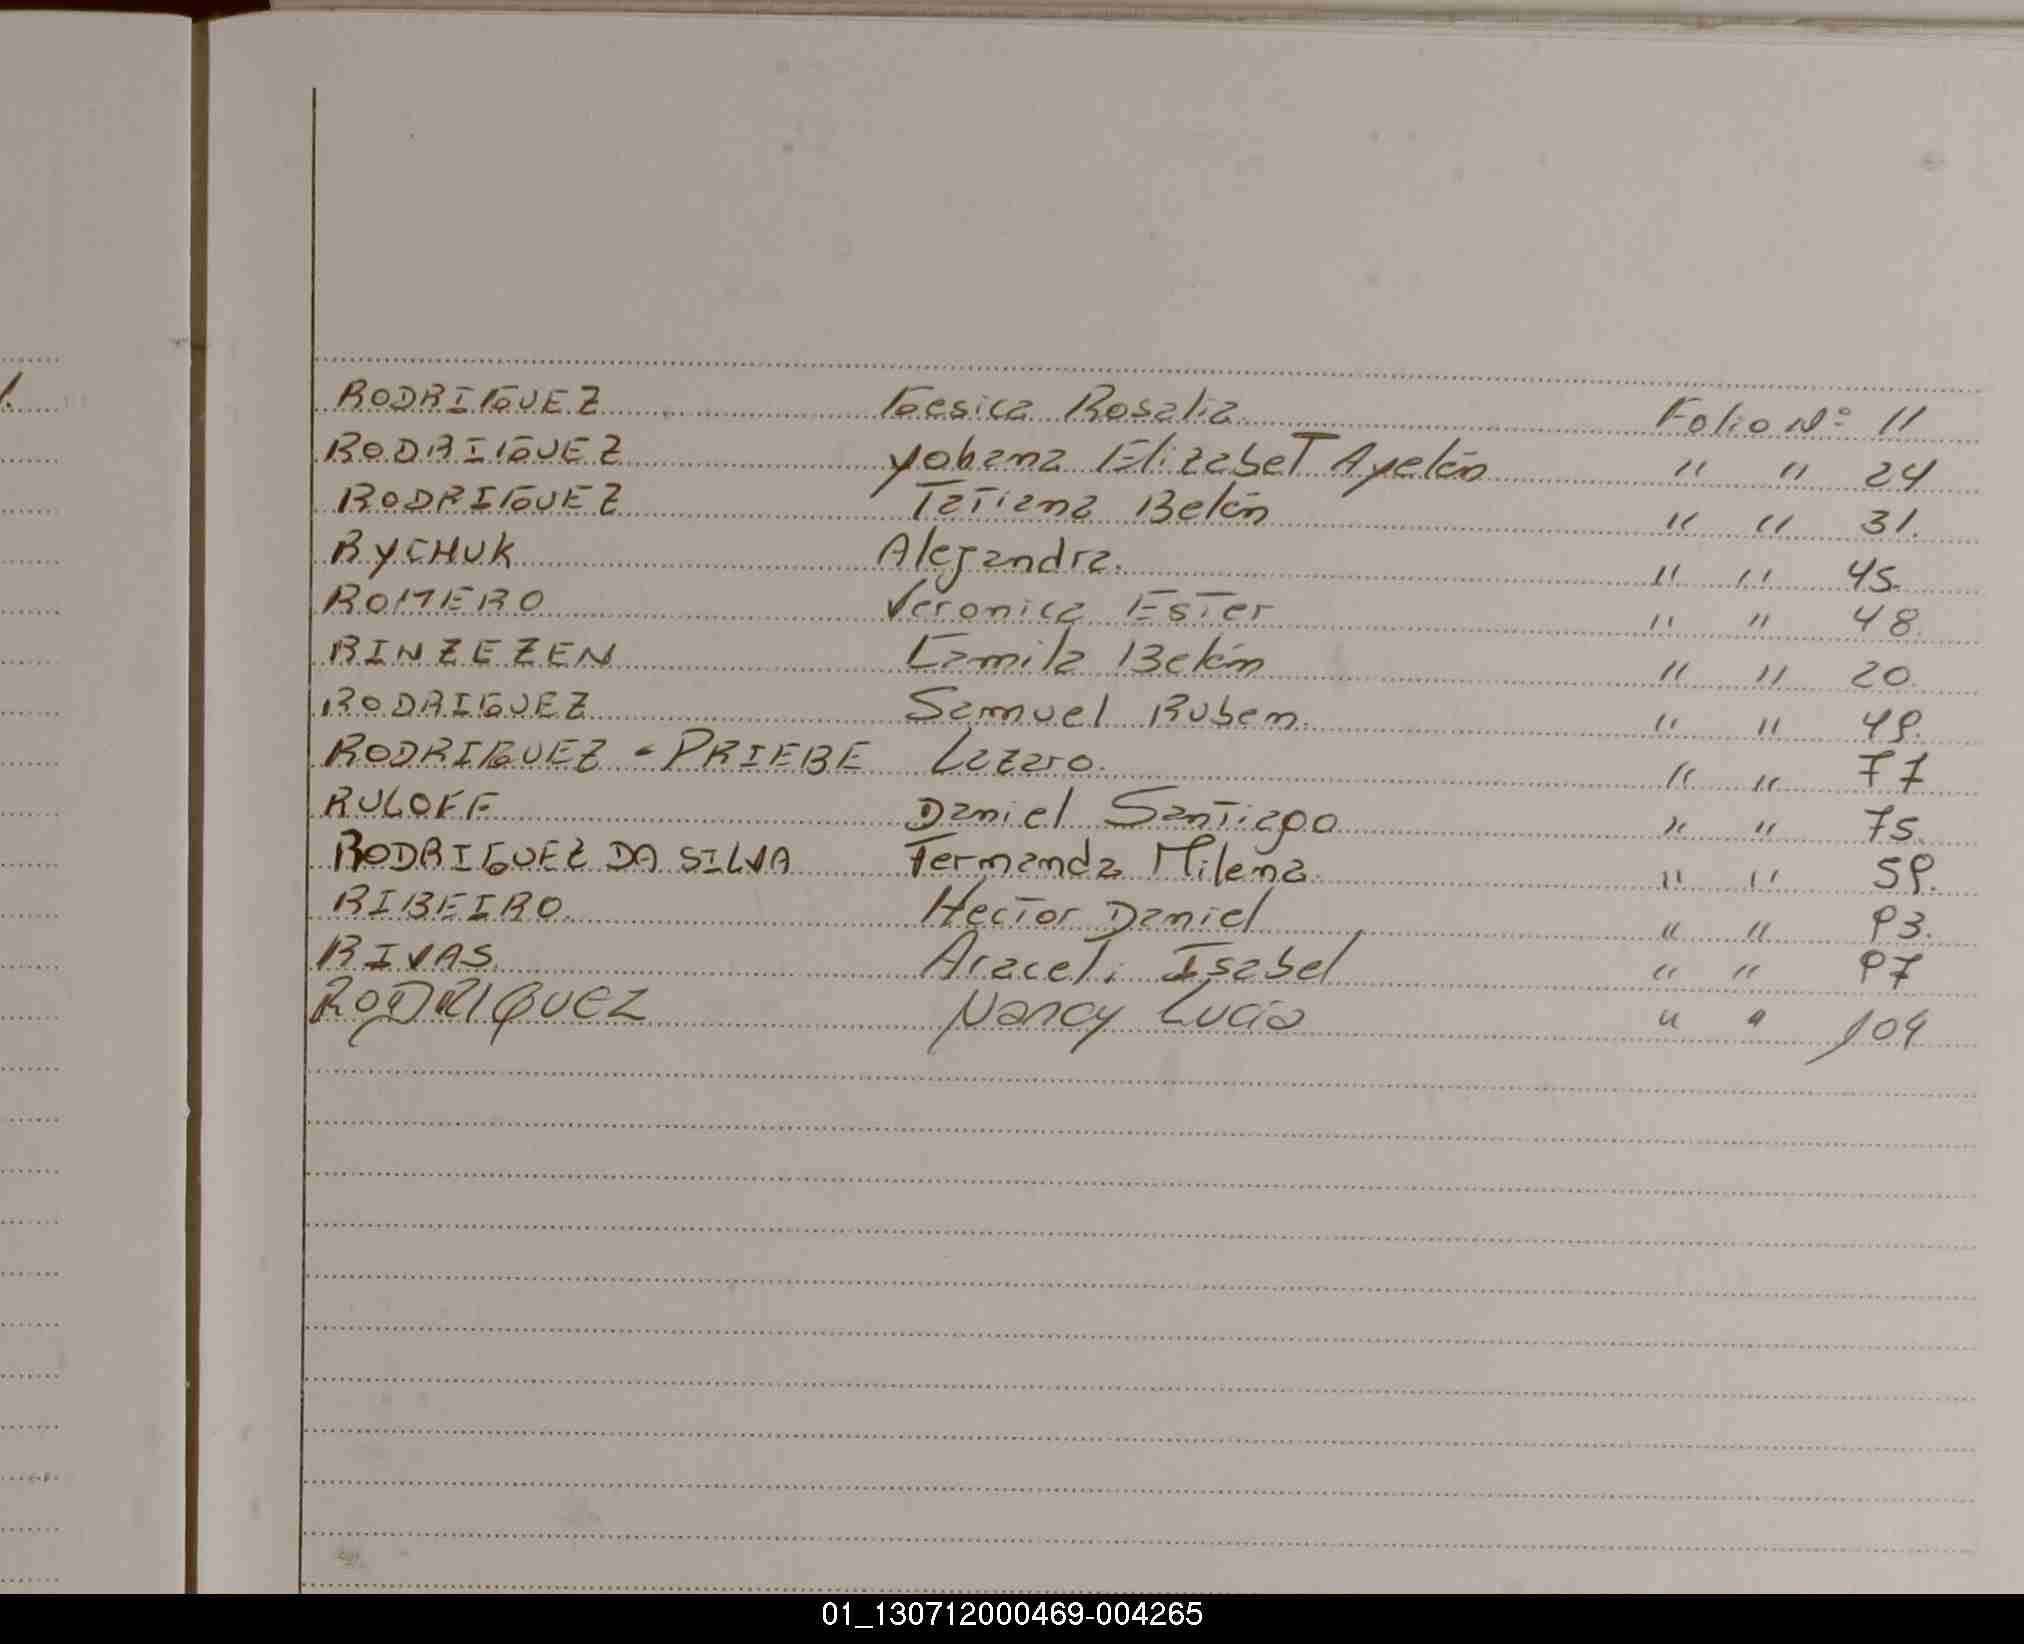 RODRIGUEZ Gesica Rosalia Folio Nº 11
RODRIGUEZ Yohana Elizabet Ayelén " " 24
RODRIGUEZ Tatiana Belén " " 31.
RYCHUK Alejandra. " " 45.
ROMERO Veronica Ester " " 48.
RINZEZEN Camila Belén " " 20.
RODRIGUEZ Samuel Ruben. " " 49.
RODRIGUEZ - PRIEBE Lazaro. " " 77
RULOFF Daniel Santiago " " 75.
RODRIGUEZ DA SILVA Fernanda Milena. " " 59.
RIBEIRO. Hector Daniel " " 93.
RIVAS. Araceli Isabel " " 97
RODRIGUEZ Nancy Lucia " " 104
01_130712000469-004265